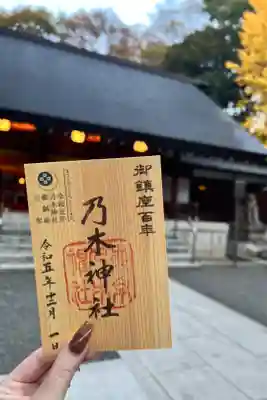 御鎮座百年
乃木神社
令和五年十二月一日